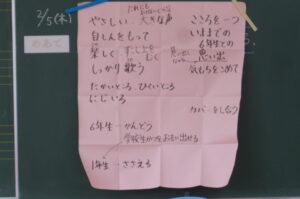 2/5(木)
めあて
だれにも まけないくらい
やさしい、大きな声
自しんをもって
楽しく、すこしよむく
しっかり歌う
たかいところ、ひくいところ
にじいろ
6年生 かんどう
学校生かつをおもい出せる
1年生 ささえる
こころを一つ
いままでの
6年生との
思い出
気もちをこめて
カバーをし合う